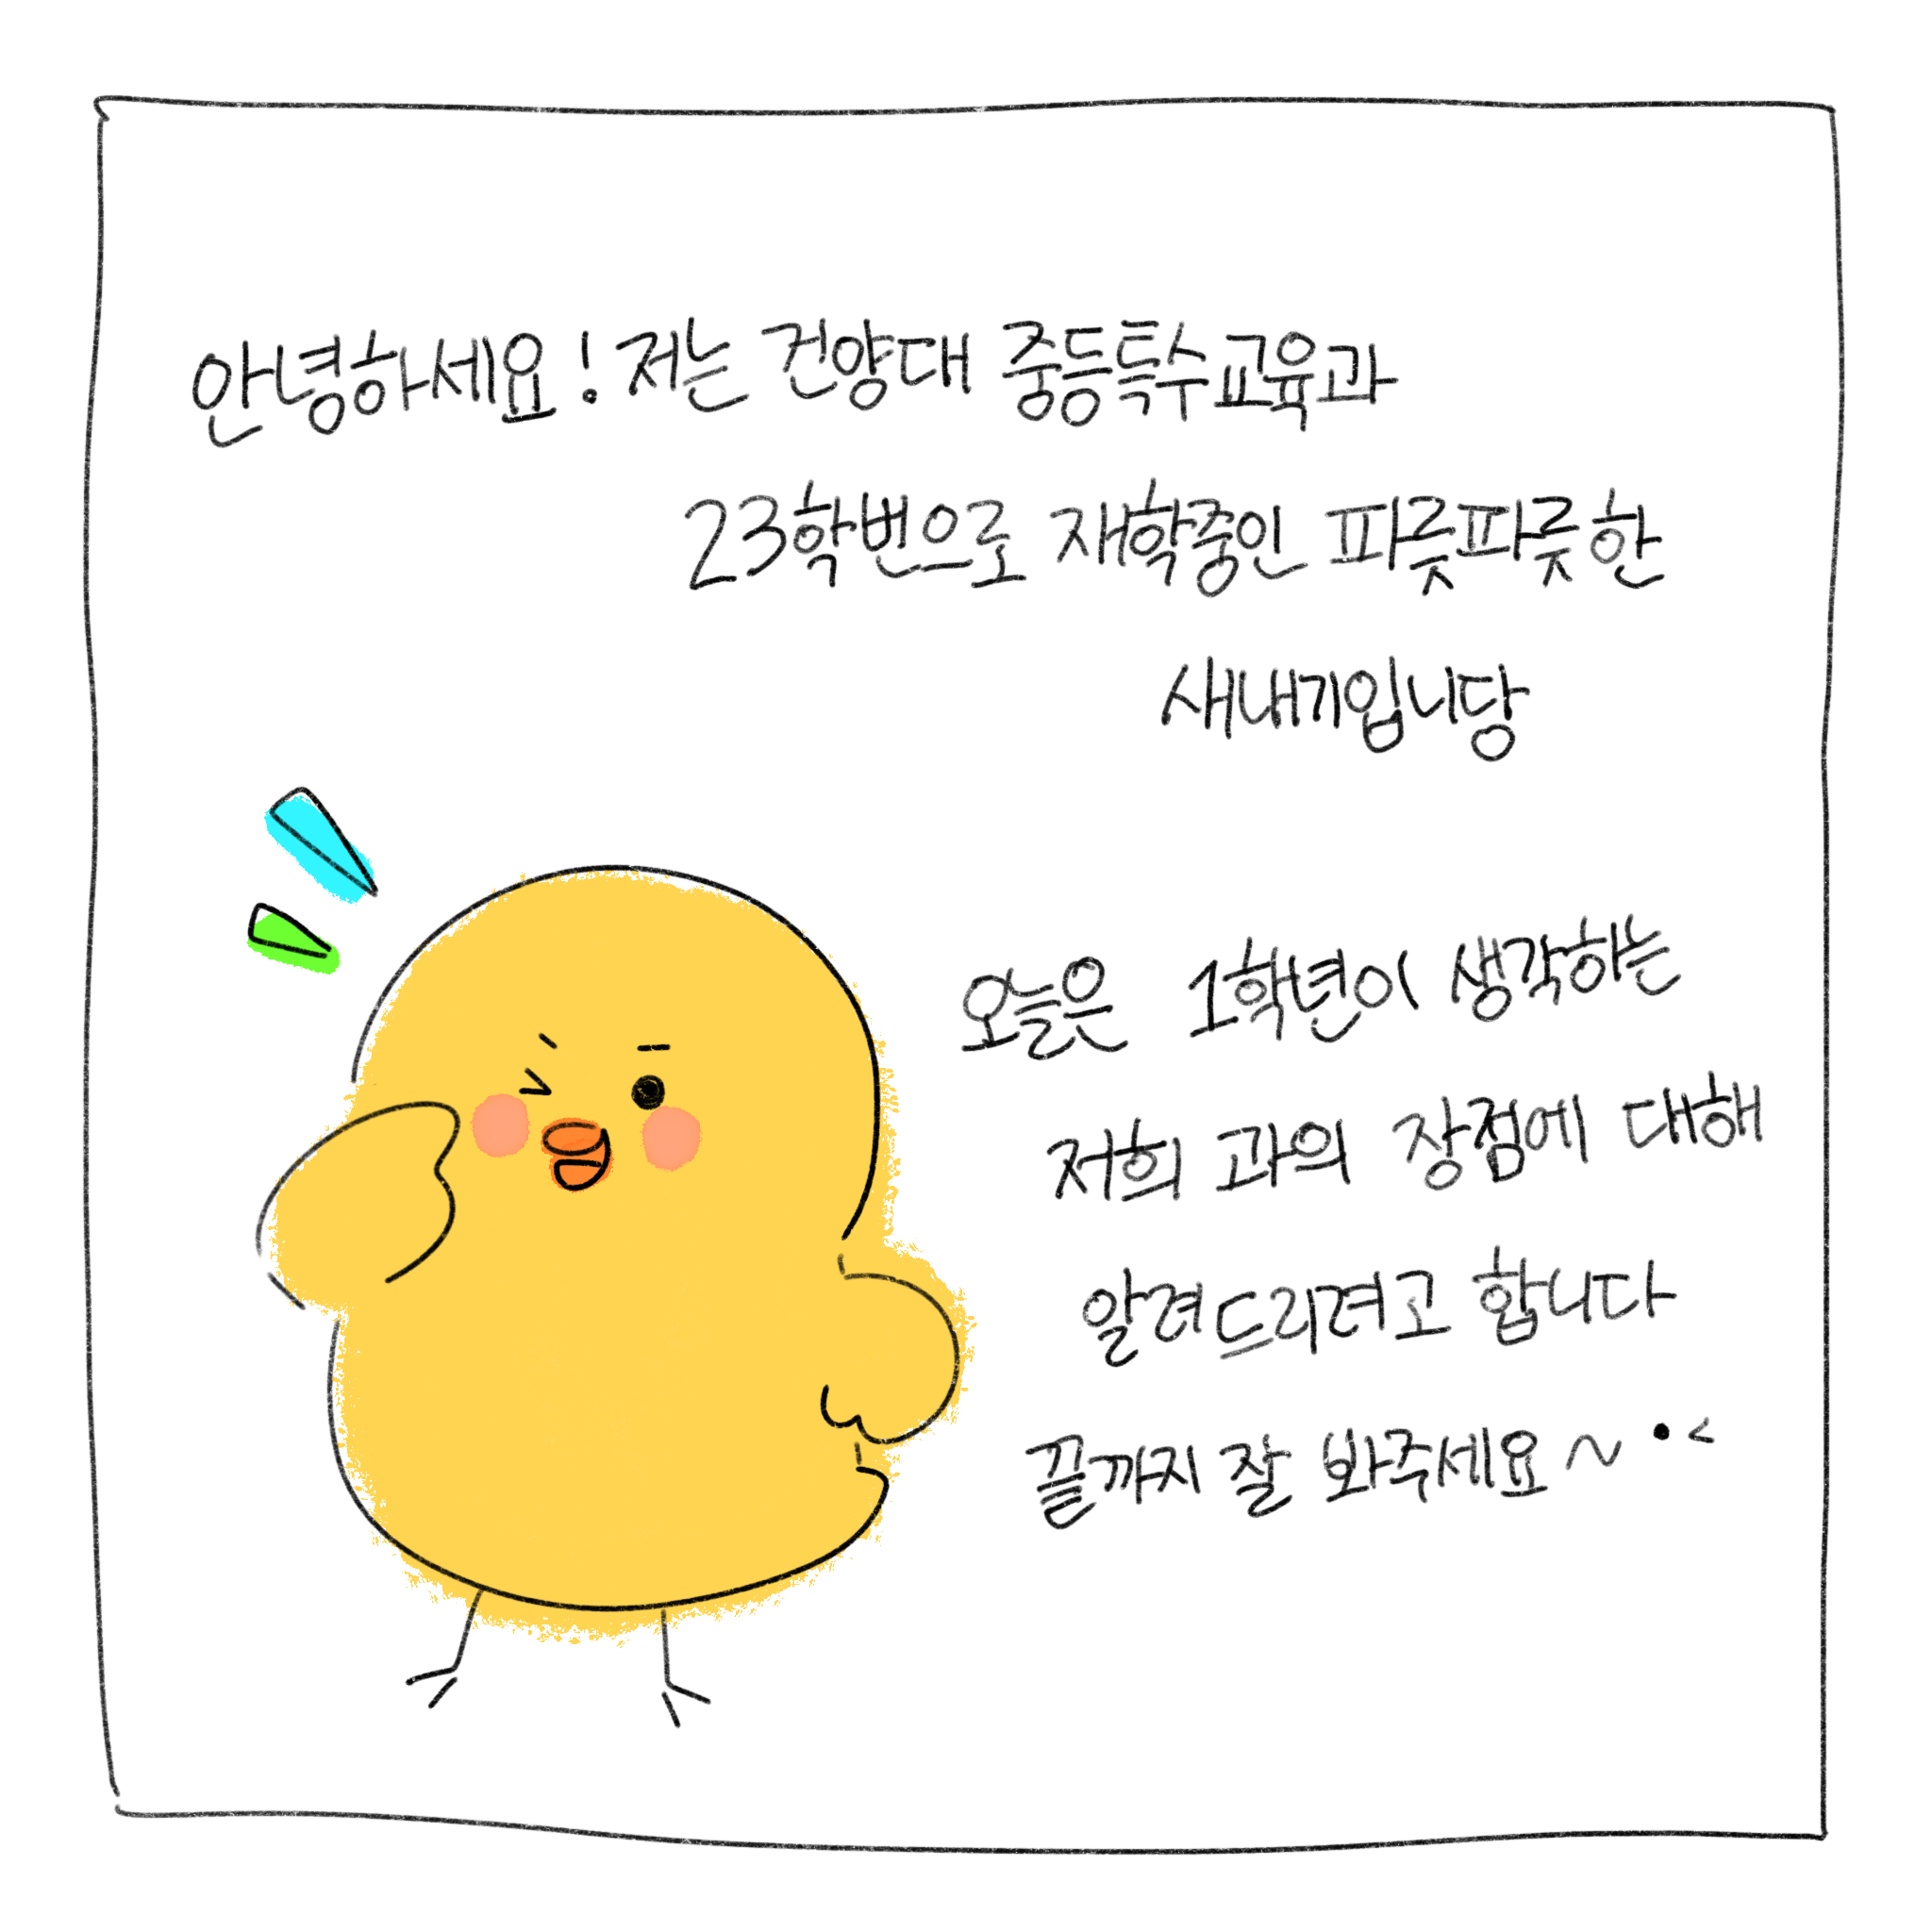 안녕하세요! 저는 건양대 중등특수교육과
23학번으로 재학중인 파릇파릇한
새내기입니당
오늘은 1학년이 생각하는
저희 과의 장점에 대해
알려드리려고 합니다
끝까지 잘 봐주세요~ •<